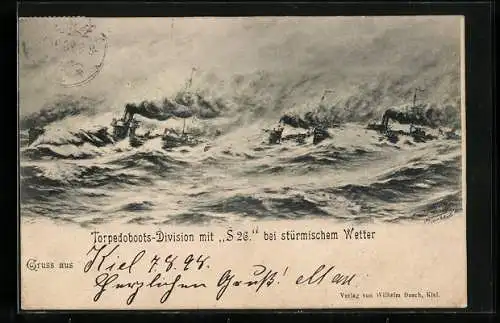 Torpedoboots-Division mit „S 26.“ bei stürmischem Wetter
Gruss aus Kiel 7.8.98.
Herzlichen Gruß!
Verlag von Wilhelm Busch, Kiel.